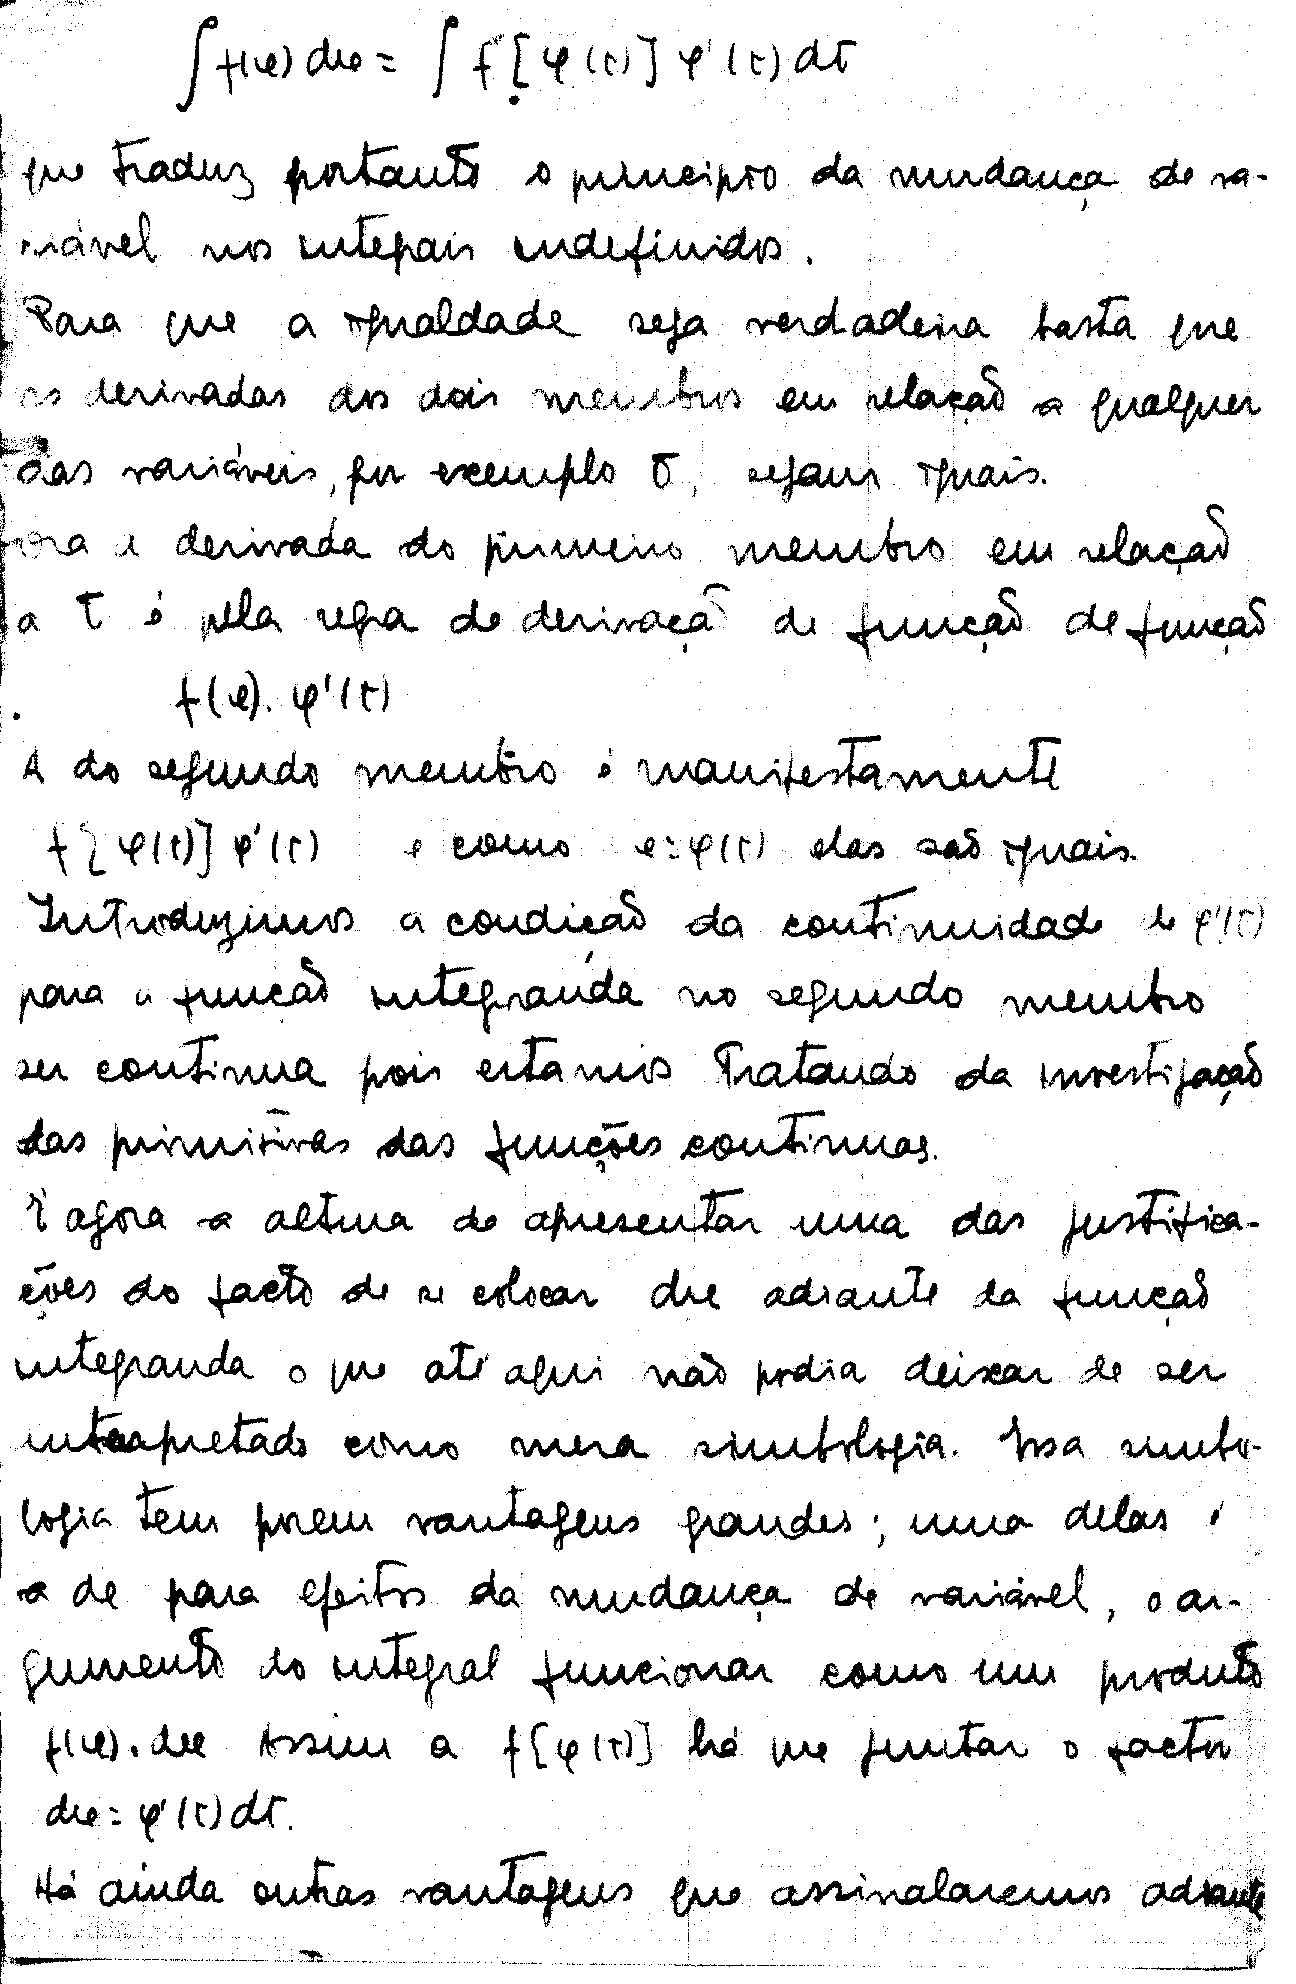 ∫ f(x) dx = ∫ f [φ(t)] φ'(t) dt
que traduz portanto o principio da mudança de va-
riável nos integrais indefinidos.
Para que a igualdade seja verdadeira basta que
as derivadas dos dois membros em relação a qualquer
das variáveis, por exemplo t, sejam iguais.
Ora a derivada do primeiro membro em relação
a t é pela regra de derivação de função de função
f(x). φ'(t)
A do segundo membro é manifestamente
f[φ(t)] φ'(t) e como x=φ(t) elas são iguais.
Introduzimos a condição da continuidade de φ'(t)
para a função integranda no segundo membro
ser continua pois estamos tratando da investigação
das primitivas das funções continuas.
É agora a altura de apresentar uma das justifica-
ções do facto de se colocar dx adiante da função
integranda o que até aqui não podia deixar de ser
interpretado como mera simbologia. Essa simbo-
logia tem porem vantagens grandes; uma delas é
a de para efeitos da mudança de variável, o ar-
gumento do integral funcionar como um produto
f(x). dx Assim a f[φ(t)] há que juntar o factor
dx = φ'(t) dt.
Há ainda outras vantagens que assinalaremos adiante